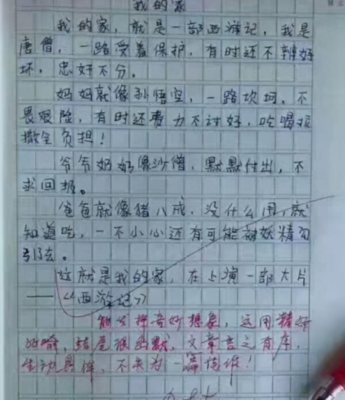 我的家
我的家,就是一部西游记,我是
唐僧,一路受着保护,有时还不辨好
坏,忠奸不分。
妈妈就像孙悟空,一路坎坷,不
畏艰险,有时还费力不讨好,吃喝拉
撒全负担!
爷爷奶奶像沙僧,默默付出,不
求回报。
爸爸就像猪八戒,没什么用,就
知道吃,一不小心还有可能被妖精勾
引去。
这就是我的家,在上演一部大片
——《西游记》
能发挥奇妙想象,运用精妙
的比喻,结尾很幽默。文章言之有序,
生动具体,不失为一篇佳作!